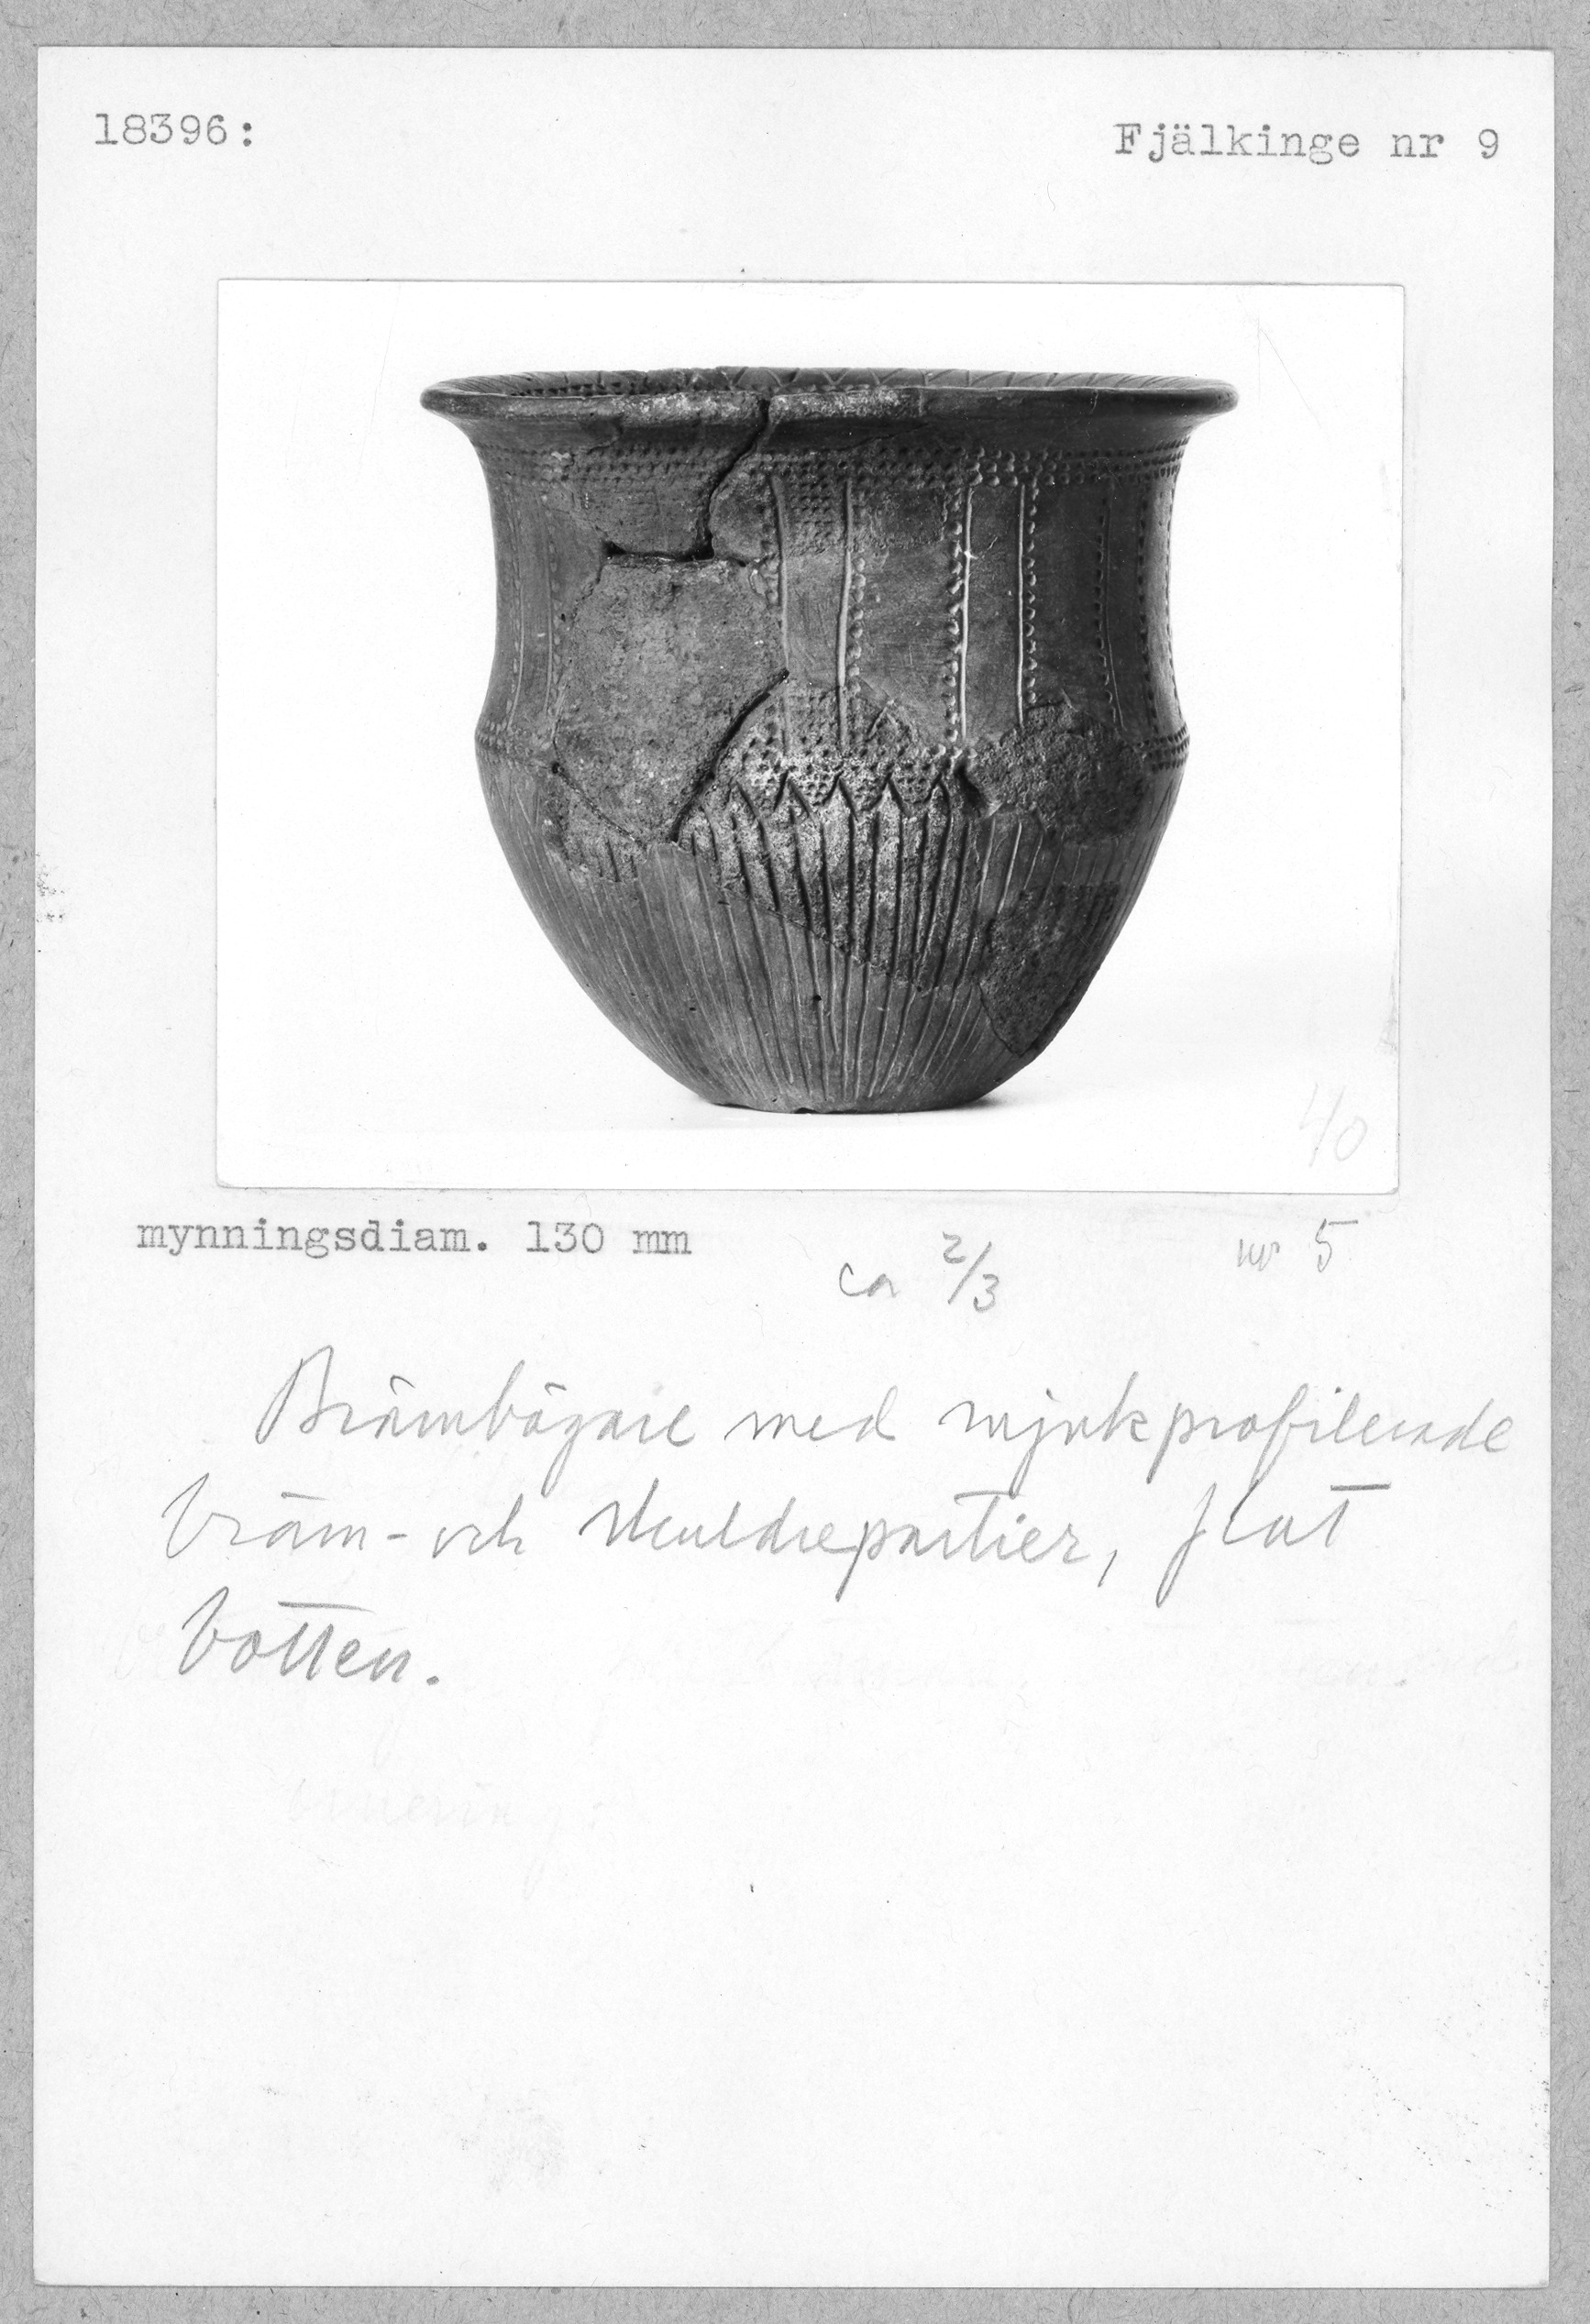 18396:
Fjälkinge nr 9
40
mynningsdiam. 130 mm
ca 2/3
nr 5
Brämbägare med mjukprofilerade
bräm- och skuldrepartier, flat
botten.